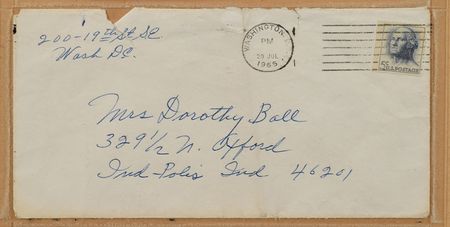 200-19th St. S.E.
Wash D.C.
WASHINGTON, D.C.
PM
29 JUL
1965
5¢
U.S. POSTAGE
Mrs Dorothy Ball
329 1/2 N. Oxford
Ind-Polis Ind 46201